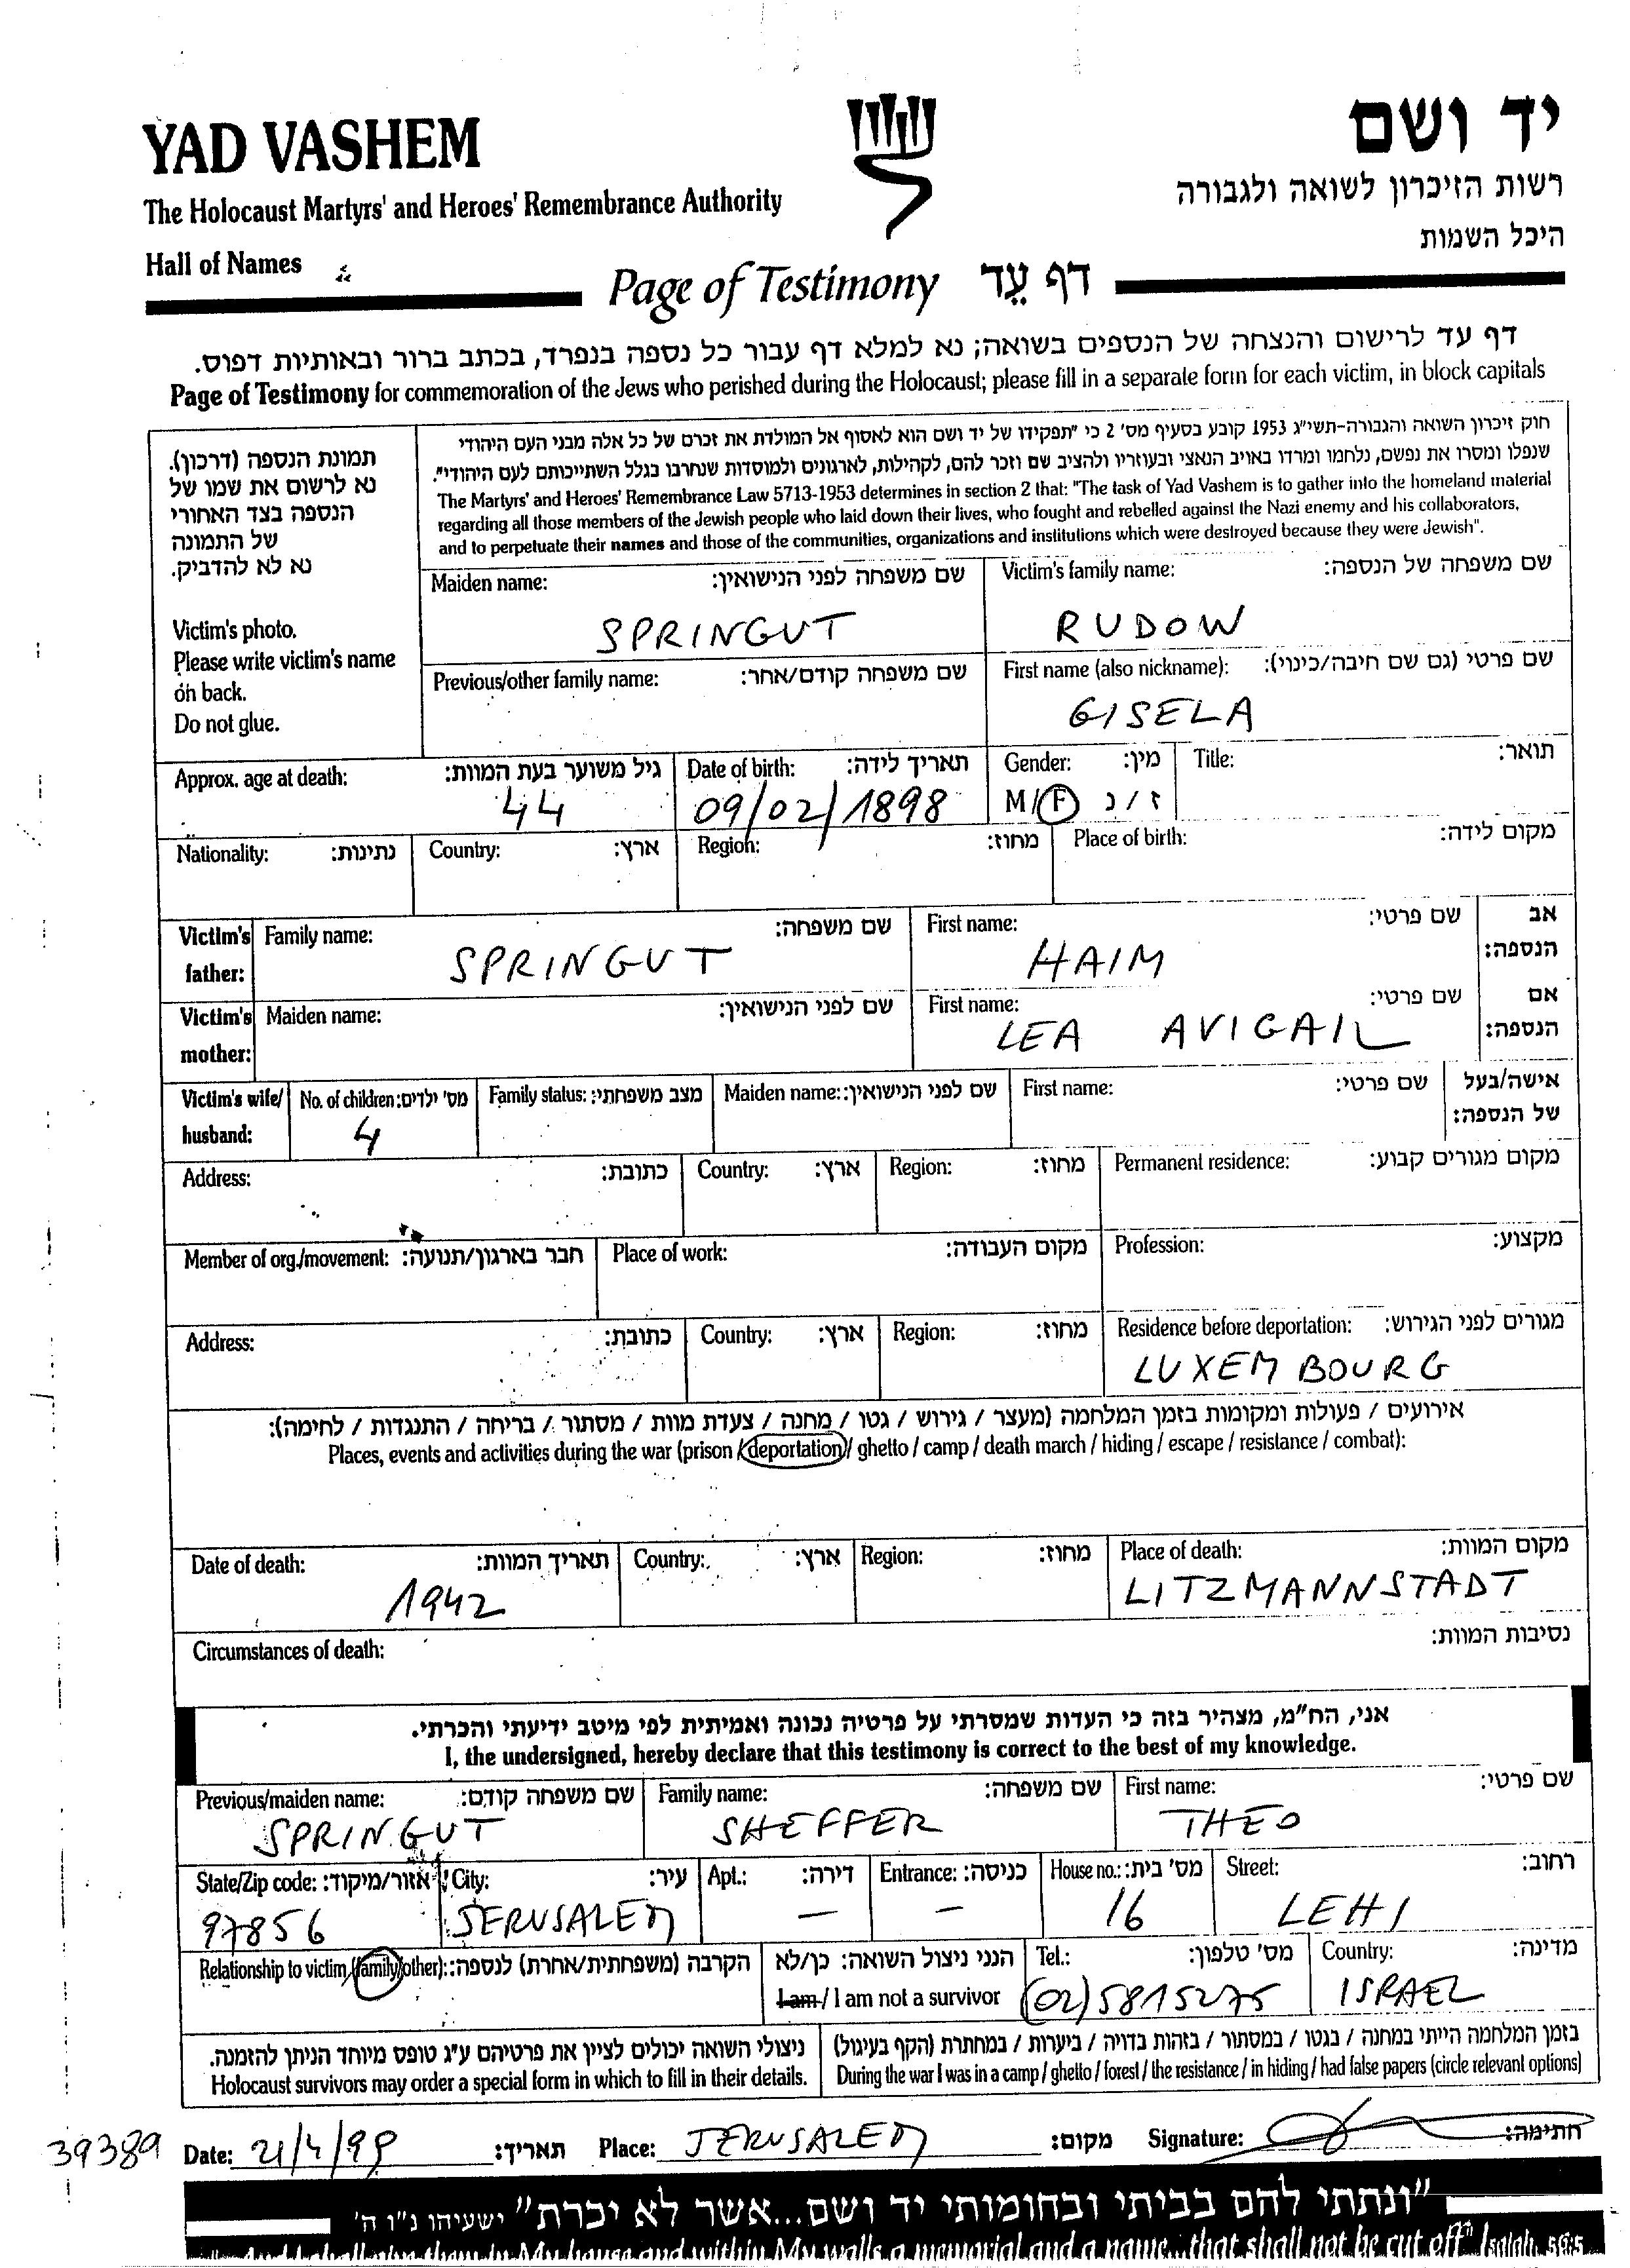 YAD VASHEM
יד ושם
The Holocaust Martyrs' and Heroes' Remembrance Authority
רשות הזיכרון לשואה ולגבורה
Hall of Names
היכל השמות
Page of Testimony דף עֵד
דף עד לרישום והנצחה של הנספים בשואה; נא למלא דף עבור כל נספה בנפרד, בכתב ברור ובאותיות דפוס.
Page of Testimony for commemoration of the Jews who perished during the Holocaust; please fill in a separate form for each victim, in block capitals
חוק זיכרון השואה והגבורה-תשי"ג 1953 קובע בסעיף מס' 2 כי "תפקידו של יד ושם הוא לאסוף אל המולדת את זכרם של כל אלה מבני העם היהודי
שנפלו ומסרו את נפשם, נלחמו ומרדו באויב הנאצי ובעוזריו ולהציב שם וזכר להם, לקהילות, לארגונים ולמוסדות שנחרבו בגלל השתייכותם לעם היהודי".
The Martyrs' and Heroes' Remembrance Law 5713-1953 determines in section 2 that: "The task of Yad Vashem is to gather into the homeland material
regarding all those members of the Jewish people who laid down their lives, who fought and rebelled against the Nazi enemy and his collaborators,
and to perpetuate their names and those of the communities, organizations and institutions which were destroyed because they were Jewish".
תמונת הנספה (דרכון).
נא לרשום את שמו של
הנספה בצד האחורי
של התמונה
נא לא להדביק.
Victim's photo.
Please write victim's name
on back.
Do not glue.
Maiden name: שם משפחה לפני הנישואין:
SPRINGUT
Victim's family name: שם משפחה של הנספה:
RUDOW
Previous/other family name: שם משפחה קודם/אחר:
First name (also nickname): שם פרטי (גם שם חיבה/כינוי):
GISELA
Approx. age at death: גיל משוער בעת המוות:
44
Date of birth: תאריך לידה:
09/02/1898
Gender: מין:
M/F ז/נ
Title: תואר:
Nationality: נתינות:
Country: ארץ:
Region: מחוז:
Place of birth: מקום לידה:
Victim's father: Family name: שם משפחה:
SPRINGUT
First name: שם פרטי: אב הנספה:
HAIM
Victim's mother: Maiden name: שם לפני הנישואין:
First name: שם פרטי: אם הנספה:
LEA AVIGAIL
Victim's wife/husband: No. of children: מס' ילדים:
4
Family status: מצב משפחתי:
Maiden name: שם לפני הנישואין:
First name: שם פרטי: אישה/בעל של הנספה:
Address: כתובת:
Country: ארץ:
Region: מחוז:
Permanent residence: מקום מגורים קבוע:
Member of org./movement: חבר בארגון/תנועה:
Place of work: מקום העבודה:
Profession: מקצוע:
Address: כתובת:
Country: ארץ:
Region: מחוז:
Residence before deportation: מגורים לפני הגירוש:
LUXEMBOURG
אירועים / פעולות ומקומות בזמן המלחמה (מעצר / גירוש / גטו / מחנה / צעדת מוות / מסתור / בריחה / התנגדות / לחימה):
Places, events and activities during the war (prison / deportation / ghetto / camp / death march / hiding / escape / resistance / combat):
Date of death: תאריך המוות:
1942
Country: ארץ:
Region: מחוז:
Place of death: מקום המוות:
LITZMANNSTADT
Circumstances of death: נסיבות המוות:
אני, הח"מ, מצהיר בזה כי העדות שמסרתי על פרטיה נכונה ואמיתית לפי מיטב ידיעתי והכרתי.
I, the undersigned, hereby declare that this testimony is correct to the best of my knowledge.
Previous/maiden name: שם משפחה קודם:
SPRINGUT
Family name: שם משפחה:
SHEFFER
First name: שם פרטי:
THEO
State/Zip code: אזור/מיקוד:
97856
City: עיר:
JERUSALEM
Apt.: דירה:
—
Entrance: כניסה:
—
House no.: מס' בית:
16
Street: רחוב:
LEHI
Relationship to victim (family/other): הקרבה (משפחתית/אחרת) לנספה:
הנני ניצול השואה: כן/לא
I am / I am not a survivor
Tel.: מס' טלפון:
(02)5815275
Country: מדינה:
ISRAEL
ניצולי השואה יכולים לציין את פרטיהם ע"ג טופס מיוחד הניתן להזמנה.
Holocaust survivors may order a special form in which to fill in their details.
בזמן המלחמה הייתי במחנה / בגטו / במסתור / בזהות בדויה / ביערות / במחתרת (הקף בעיגול)
During the war I was in a camp / ghetto / forest / the resistance / in hiding / had false papers (circle relevant options)
39389
Date: 21/4/99 תאריך:
Place: JERUSALEM מקום:
Signature: חתימה:
"ונתתי להם בביתי ובחומותי יד ושם...אשר לא יכרת" ישעיהו נ"ו ה'
And I shall give them in My house and within My walls a memorial and a name...that shall not be cut off" Isaiah 56:5